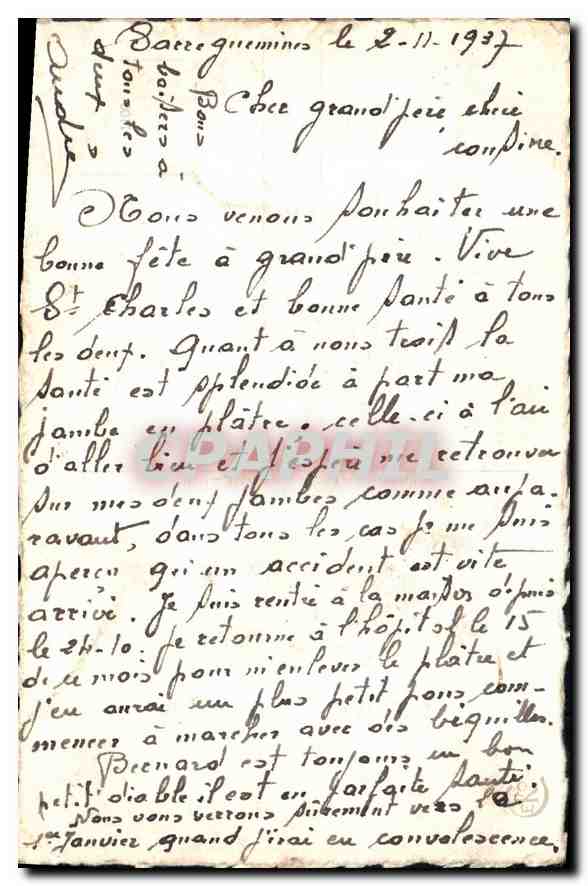 Sarreguemines le 2-11-1937
Cher grand'père chère
cousine.
Nous venons souhaiter une
bonne fête à grand'père. Vive
St Charles et bonne santé à tous
les deux. Quant à nous trois la
santé est splendide à part ma
jambe en plâtre. celle-ci à l'air
d'aller bien et j'espère me retrouver
sur mes deux jambes comme aupa-
ravant, dans tous les cas je me suis
aperçu qu'un accident est vite
arrivé. Je suis rentré à la maison depuis
le 24-10. je retourne à l'hôpital le 15
du mois pour m'enlever le plâtre et
j'en aurai un plus petit pour com-
mencer à marcher avec des béquilles.
Bernard est toujours un bon
petit diable il est en parfaite santé.
Nous vous verrons sûrement vers le
1er Janvier quand j'irai en convalescence.
Bons
baisers à
tous les
deux
André
CPAPHIL